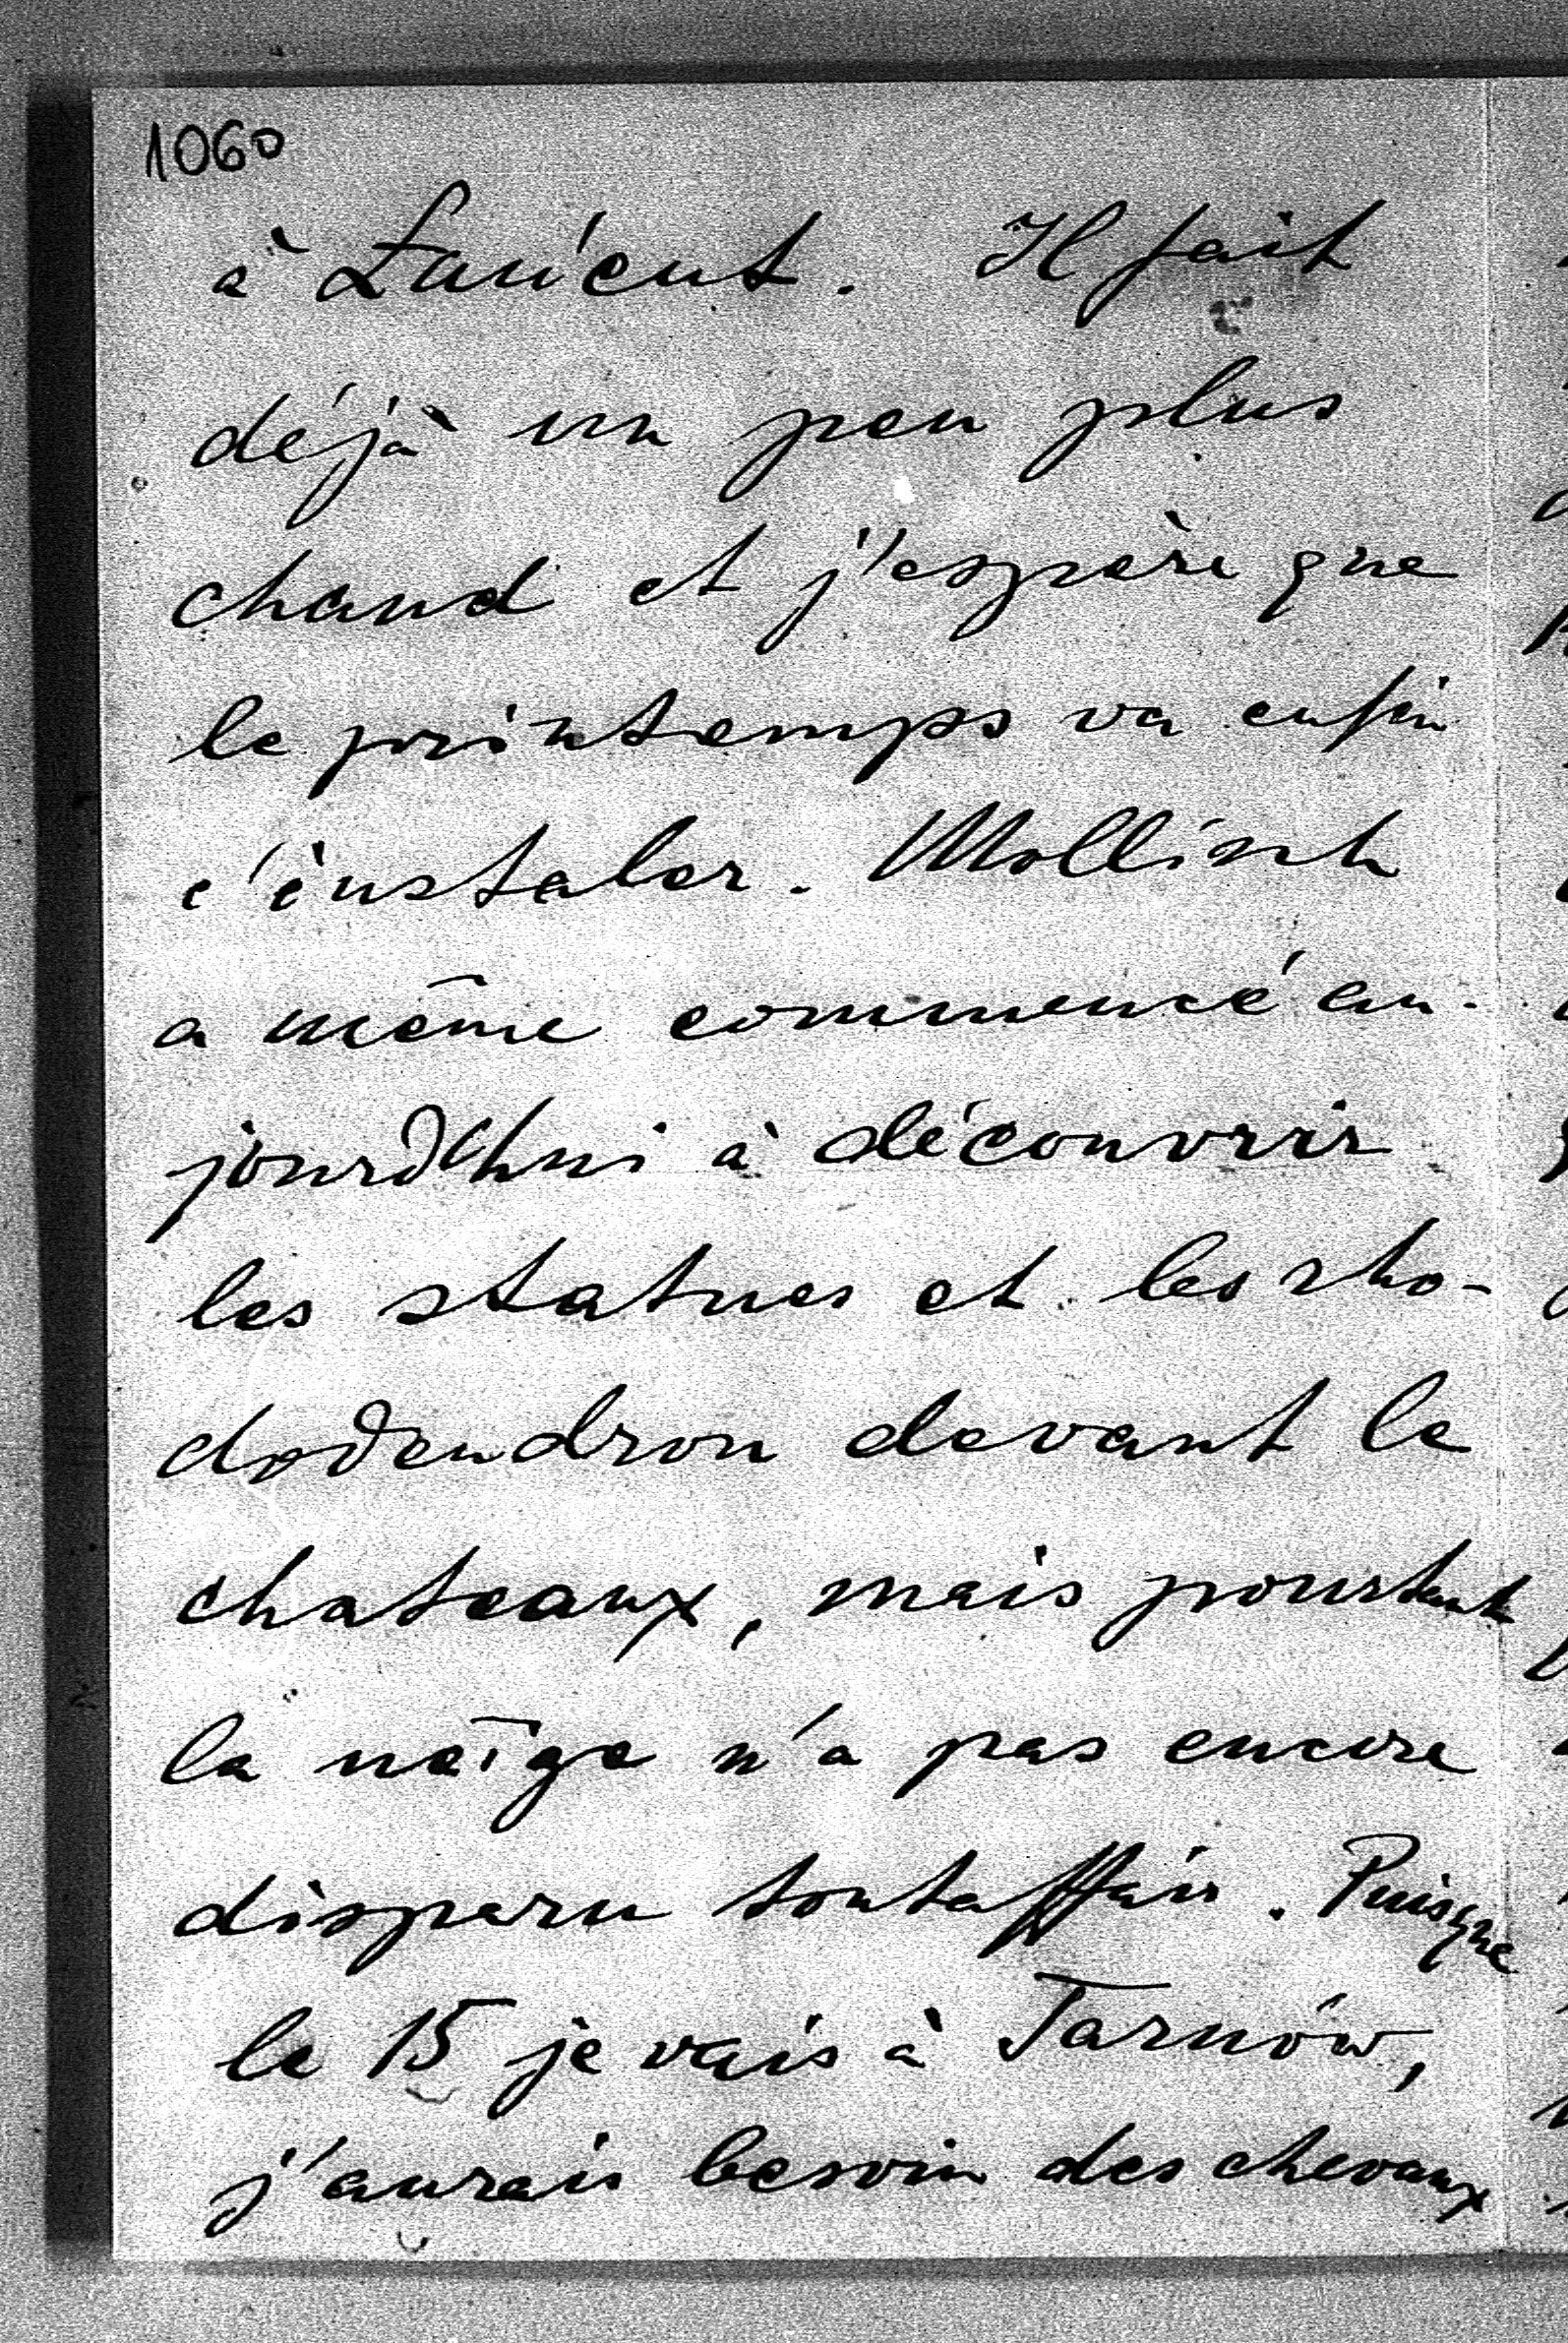 1060
à Łańcut. Il fait
déjà un peu plus
chaud et j'espère que
le printemps va enfin
c'instaler. Mollisch
a même commencé au-
jourd'hui à découvrir
les statues et les rho-
dodendron devant le
chateaux, mais pourtant
la neige n'a pas encore
disparu toutaffais. Puisque
le 15 je vais à Tarnów,
j'aurais besoin des chevaux